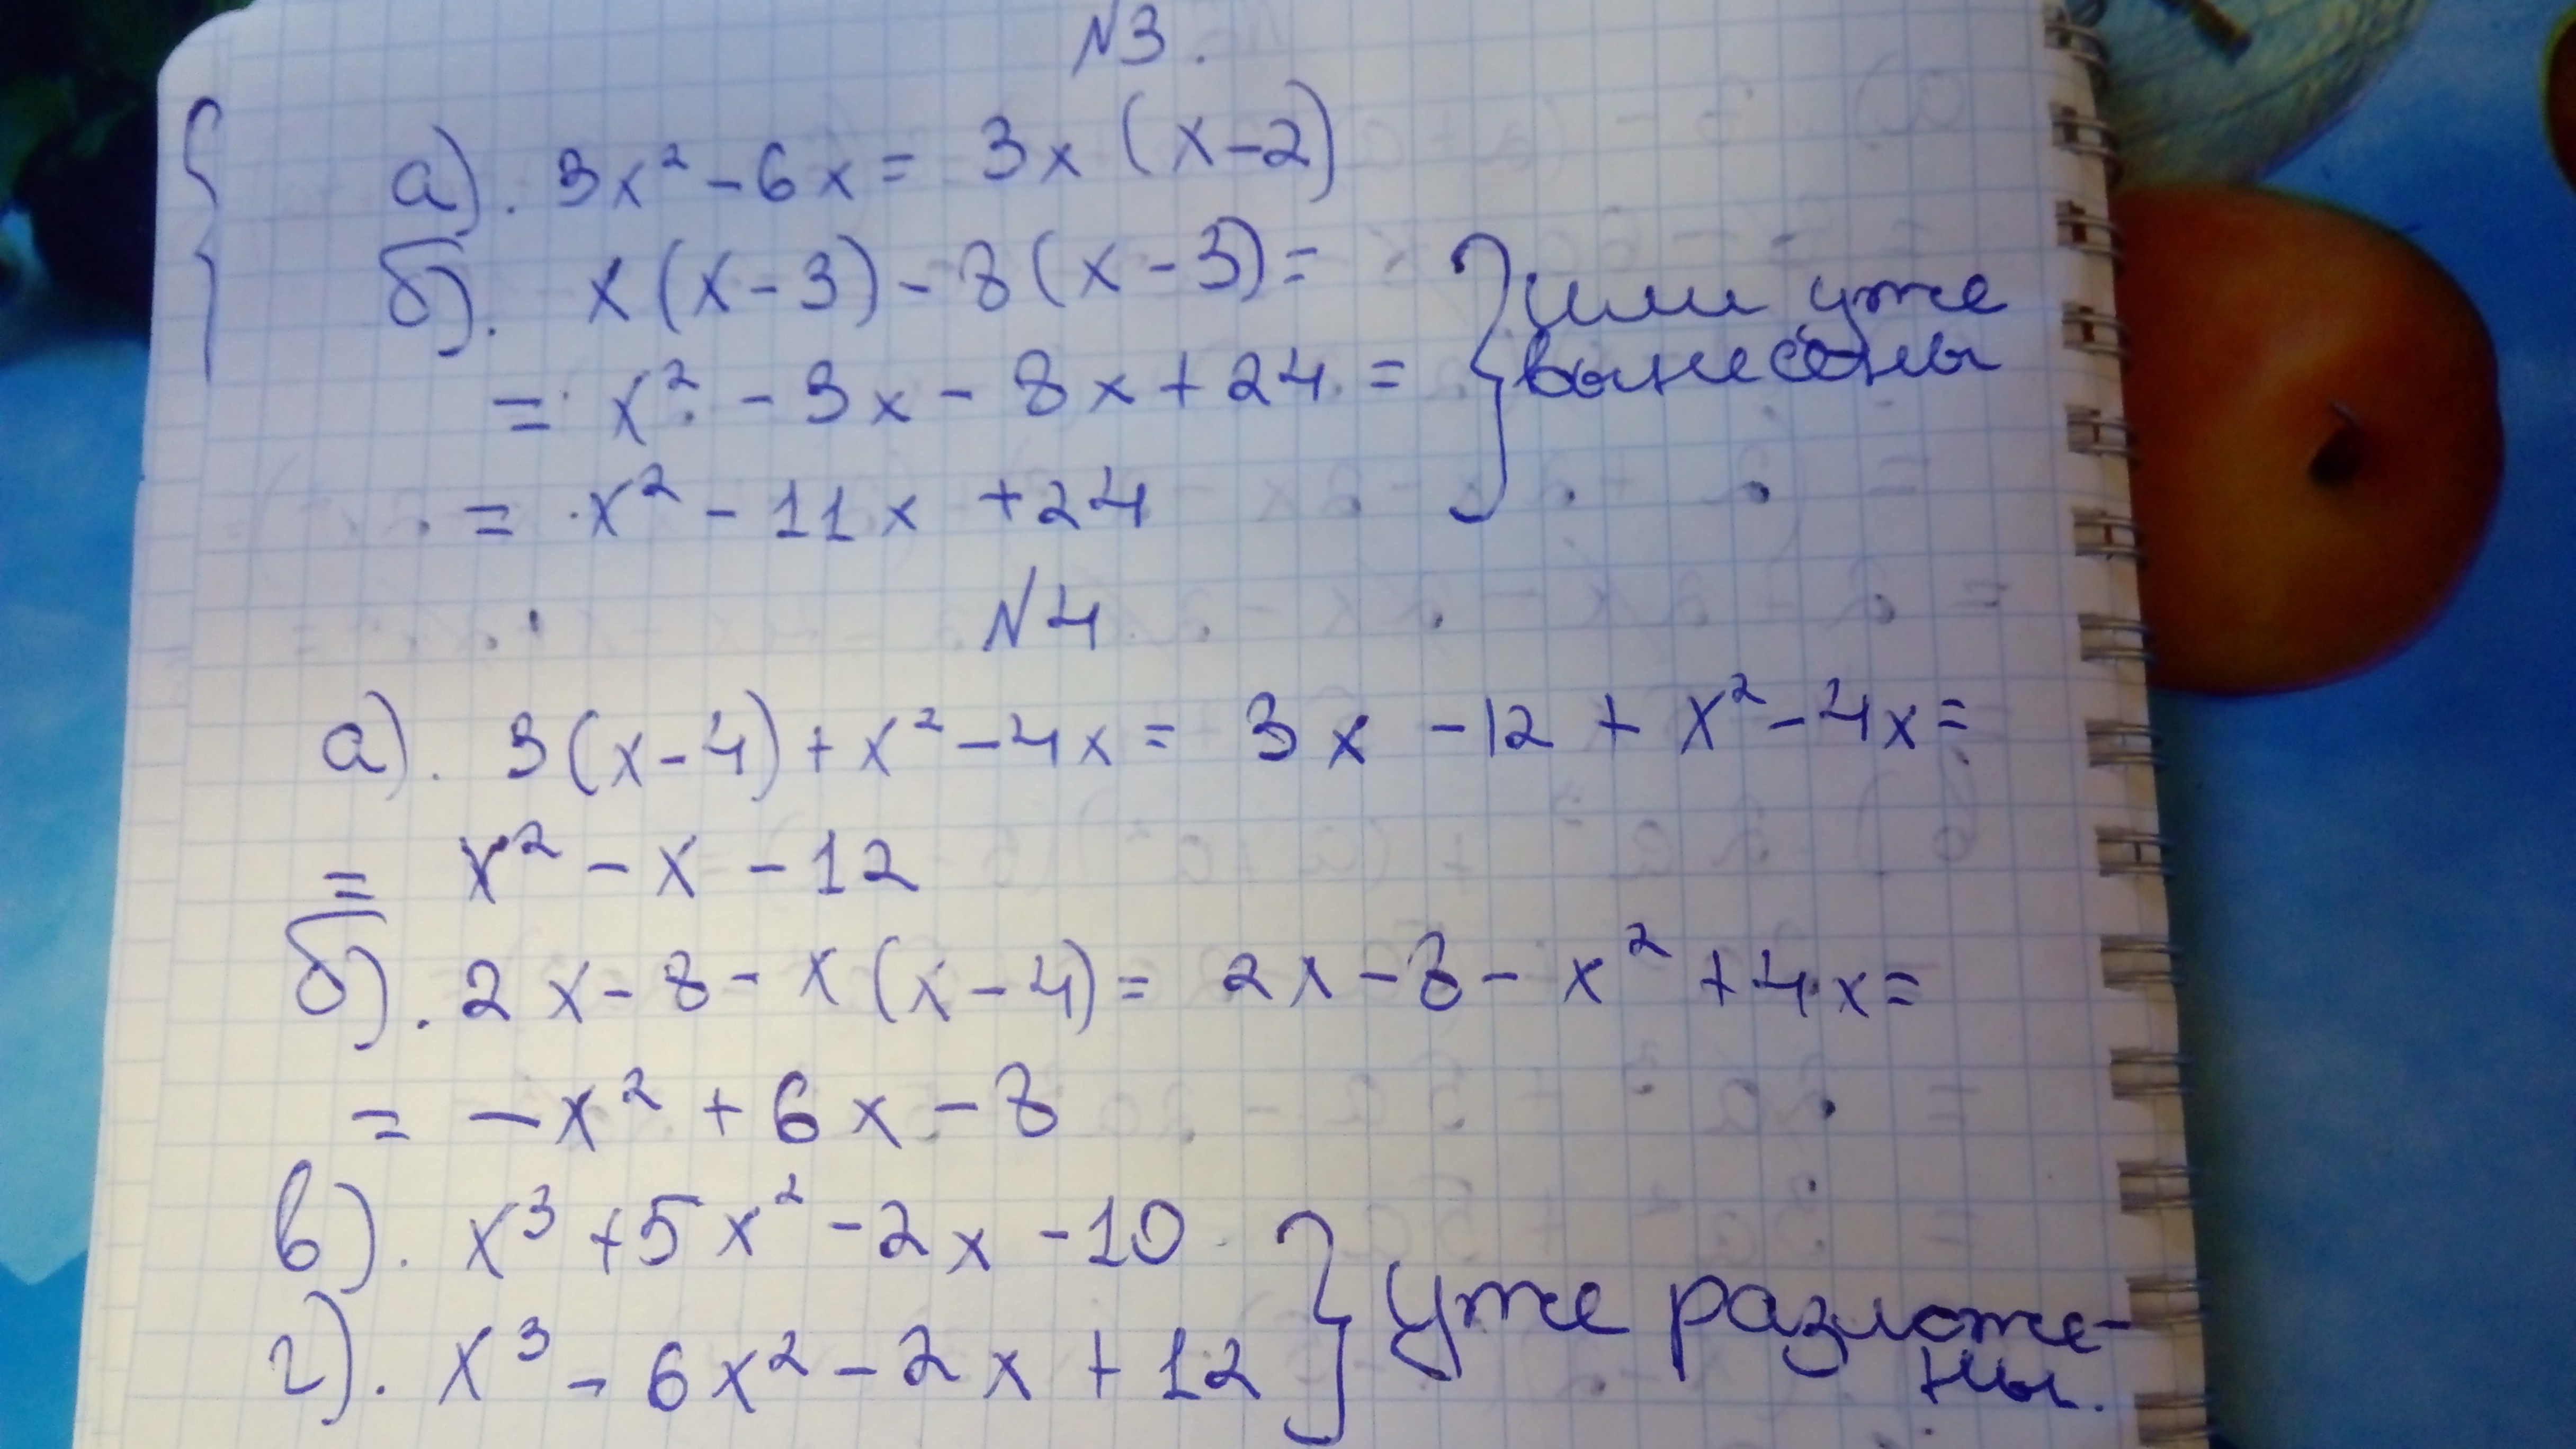 N3.
а). 3x² - 6x = 3x (x-2)
б). x(x-3) - 8(x-3) =
= x² - 3x - 8x + 24 =
= x² - 11x + 24
или уже
вынесены
N4
а). 3(x-4) + x² - 4x = 3x - 12 + x² - 4x =
= x² - x - 12
б). 2x - 8 - x(x-4) = 2x - 8 - x² + 4x =
= -x² + 6x - 8
в). x³ + 5x² - 2x - 10
г). x³ - 6x² - 2x + 12
уже разложе-
ны.